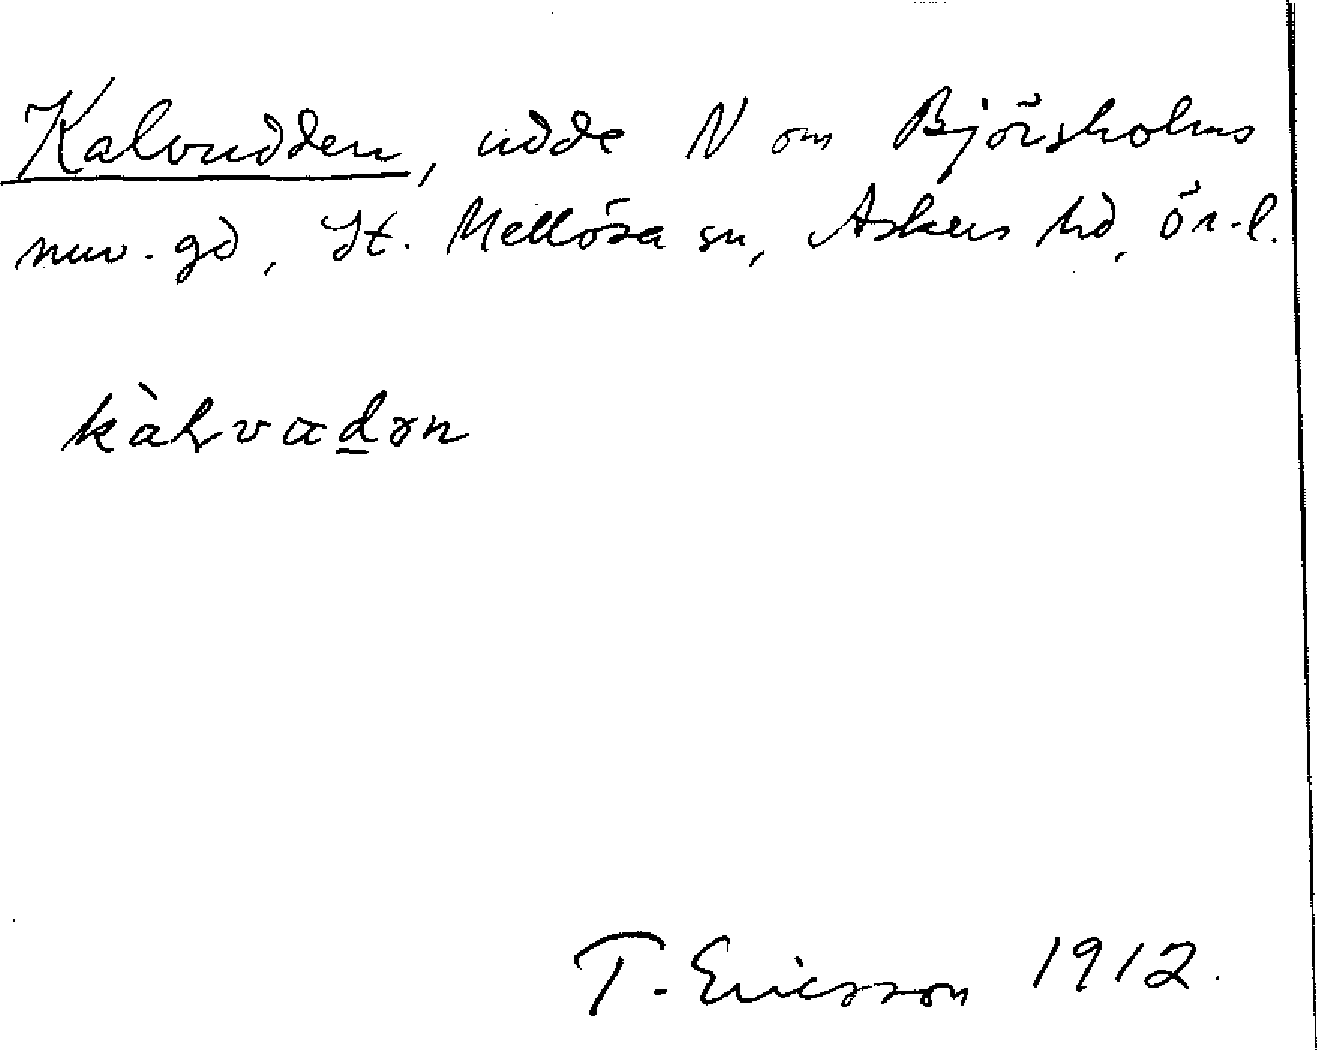 Kalvudden, udde N om Björsholms
nuv. gd, St. Mellösa sn, Askers hd, Ör. l.
T. Ericsson 1912.